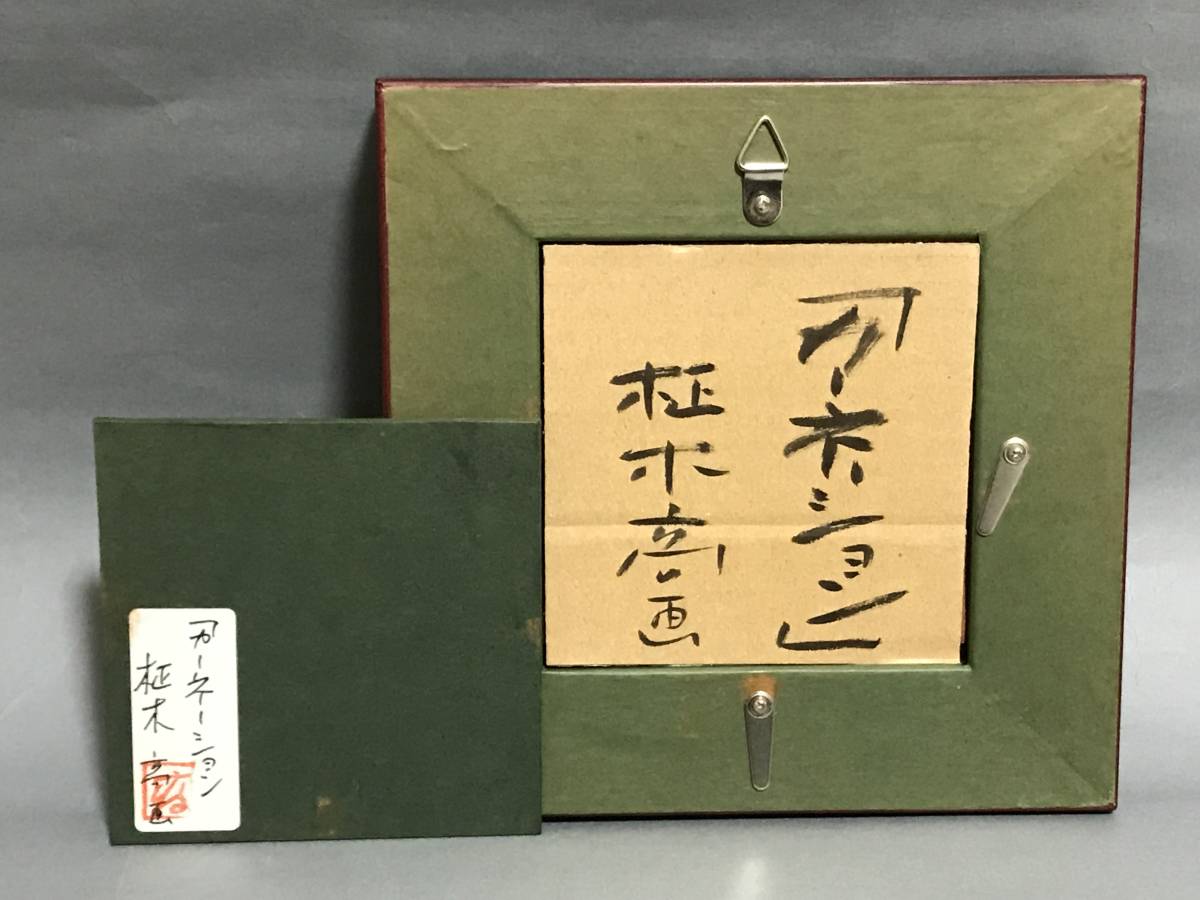 「カーネション」
柾木高画
「カーネーション
柾木高画